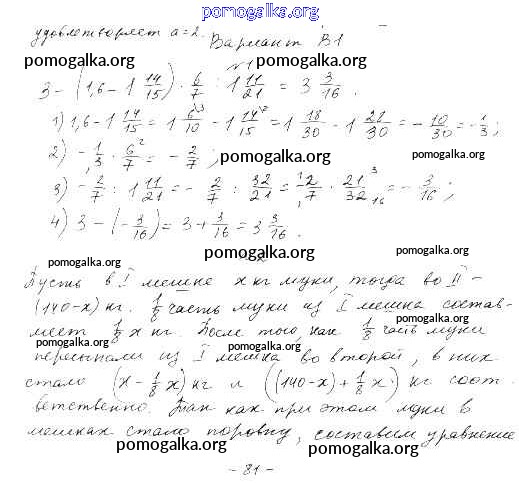 pomogalka.org
удовлетворяет a = 2.
Вариант В1
pomogalka.org pomogalka.org
№1
3 - (1,6 - 1 14/15) · 6/7 : 1 11/21 = 3 3/16.
pomogalka.org
1) 1,6 - 1 14/15 = 1 6/10 - 1 14/15 = 1 18/30 - 1 28/30 = - 10/30 = - 1/3;
2) - 1/3 · 6/7 = - 2/7;
pomogalka.org pomogalka.org
3) - 2/7 : 1 11/21 = - 2/7 : 32/21 = - 2/7 · 21/32 = - 3/16;
pomogalka.org
4) 3 - (- 3/16) = 3 + 3/16 = 3 3/16.
pomogalka.org
pomogalka.org pomogalka.org
Пусть в I мешке x кг муки, тогда во II -
(140-x) кг. 1/8 часть муки из I мешка состав-
pomogalka.org
ляет 1/8 x кг. После того, как 1/8 часть муки
pomogalka.org pomogalka.org
пересыпали из I мешка во второй, в них
стало (x - 1/8 x) кг и ((140-x) + 1/8 x) кг соот
pomogalka.org
ветственно. Так как при этом муки в
мешках стало поровну, составим уравнение
pomogalka.org pomogalka.org
- 81 -